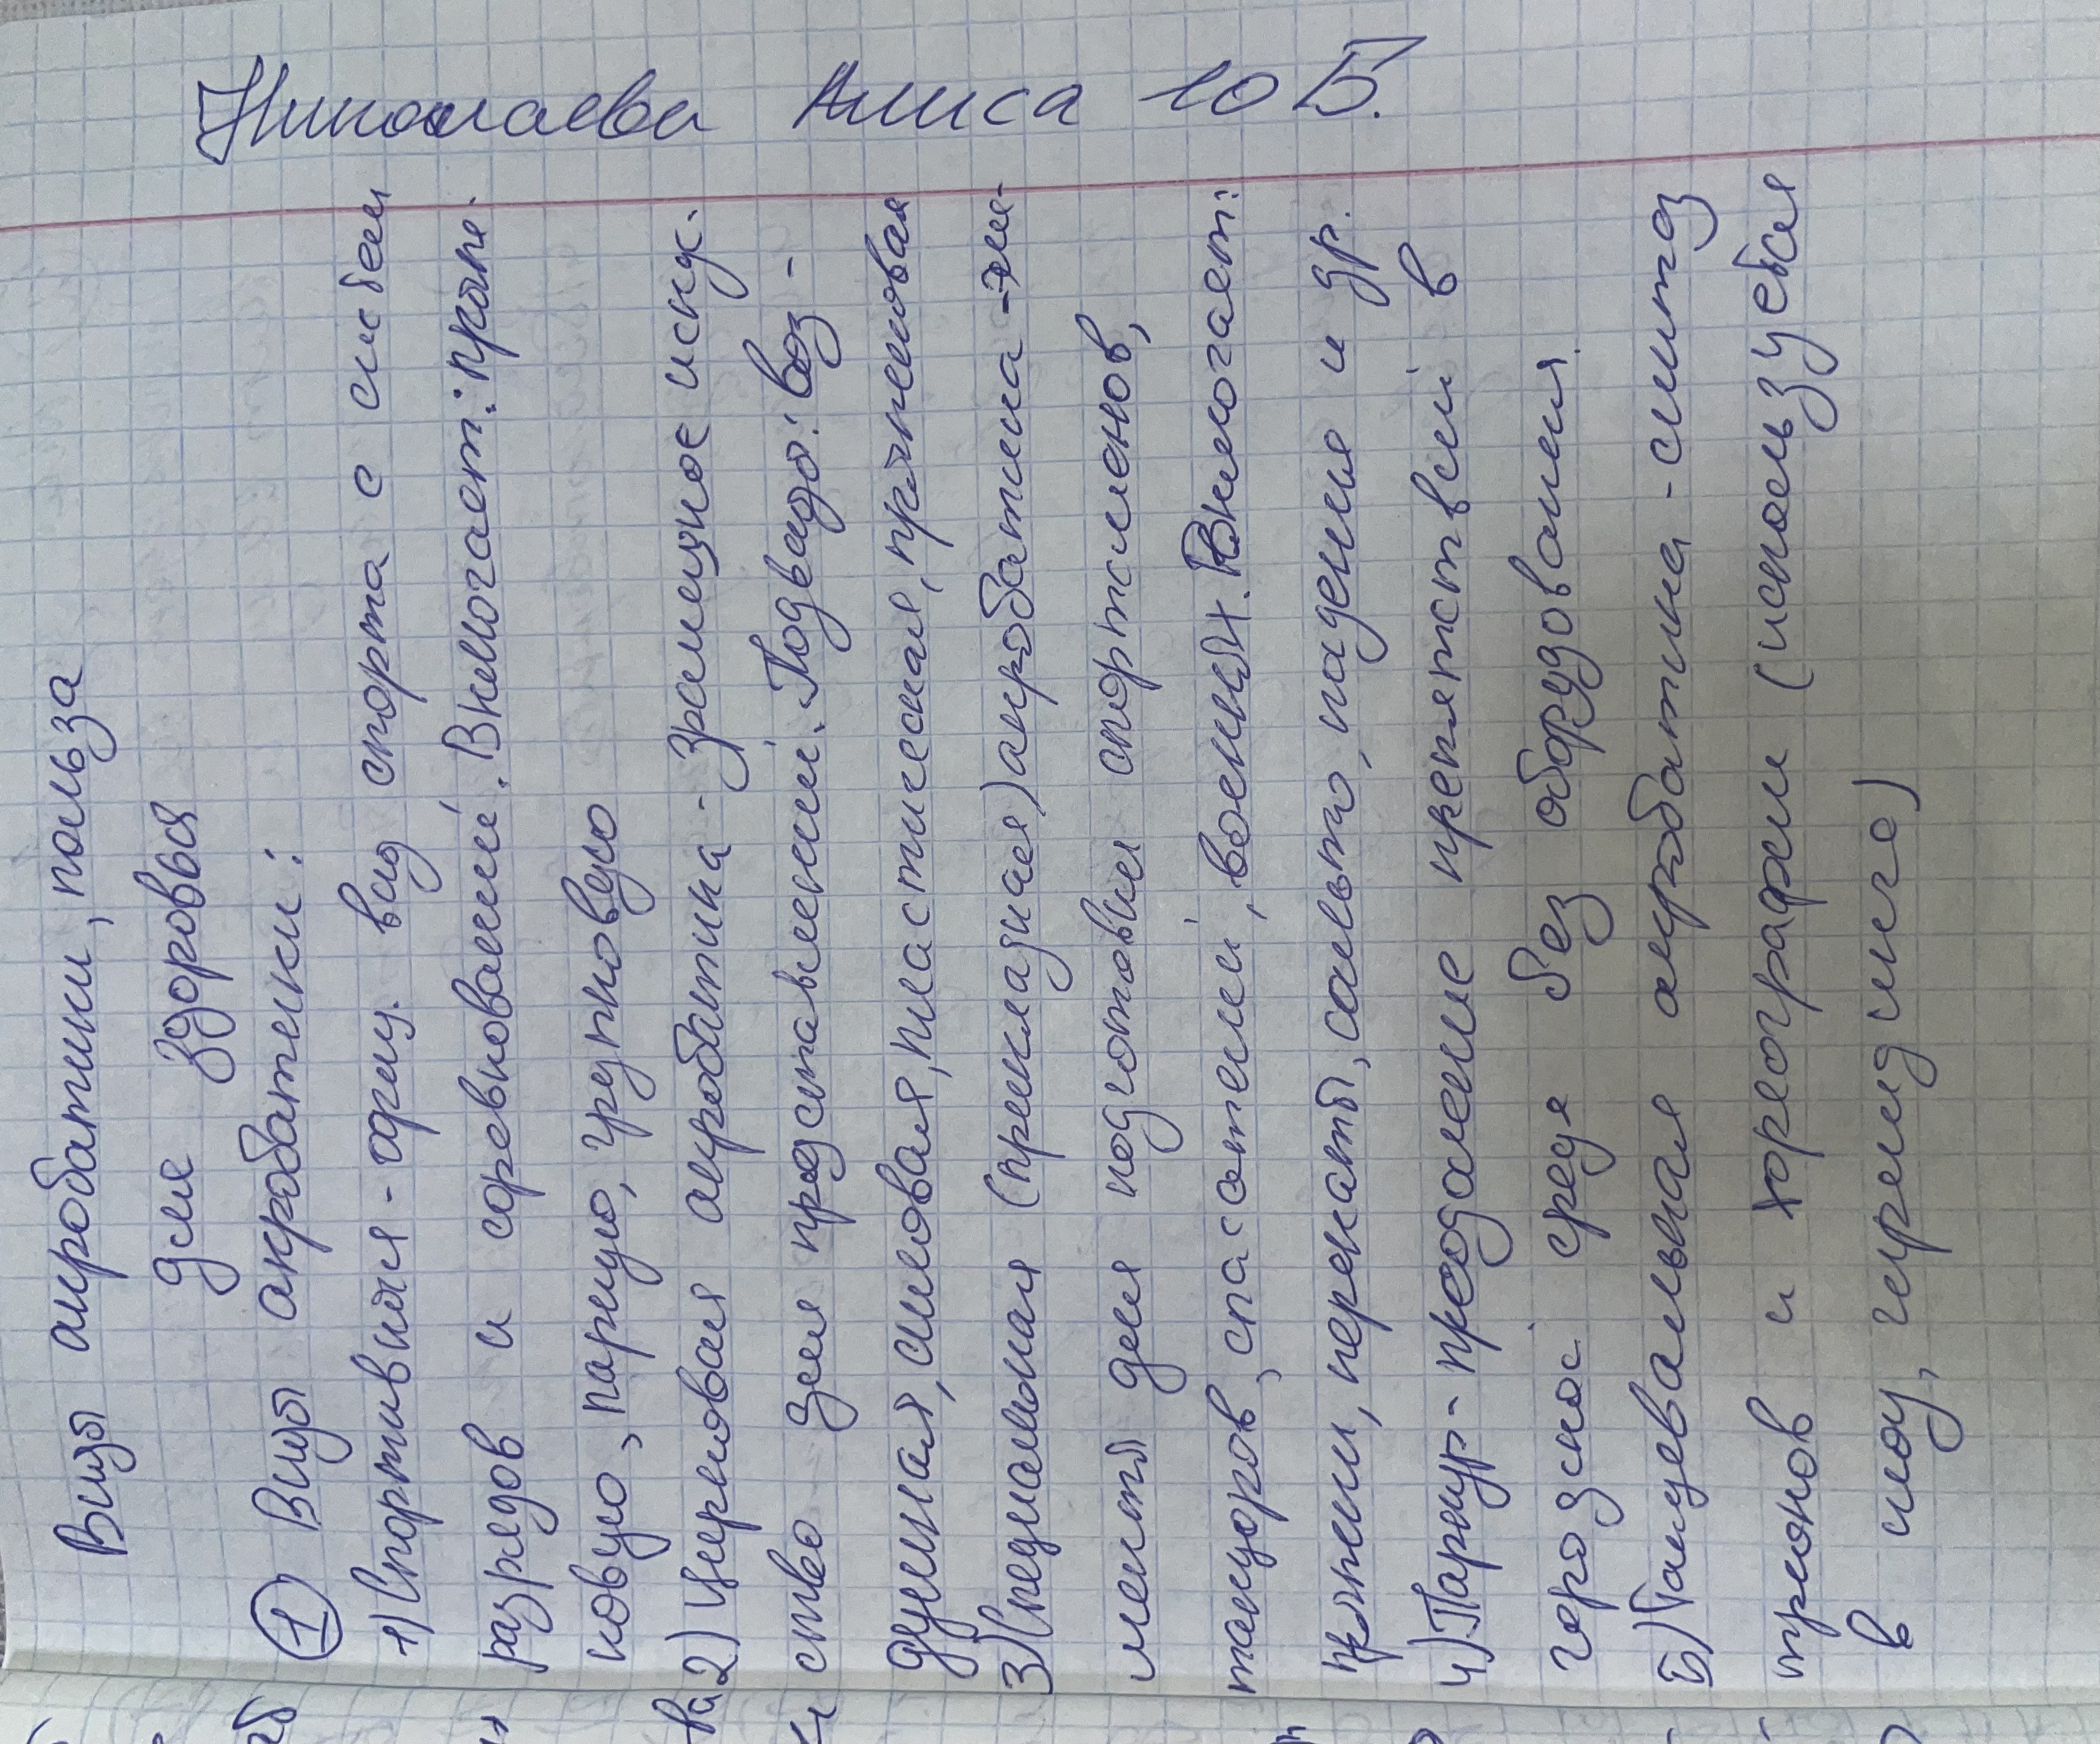 Николаева Алиса 10 Б.
Виды акробатики, польза
для здоровья
① Виды акробатики:
1) Спортивная - офиц. вид спорта с систем
разрядов и соревнований. Включает: прыж
ковую, парную, групповую
2) Цирковая акробатика - зрелищное искус.
ство для представлений. Подвиды: воз -
душная, силовая, пластическая, прыжковая
3) Специальная (прикладная) акробатика - эле-
менты для подготовки спортсменов,
танцоров, спасателей, военных. Включает:
прыжки, перекаты, сальто, падения и др.
4) Паркур - преодаление препятствий в
городской среде без оборудования.
5) Танцевальная акробатика - синтез
трюков и хореографии (используется
в шоу, чирлидинге)